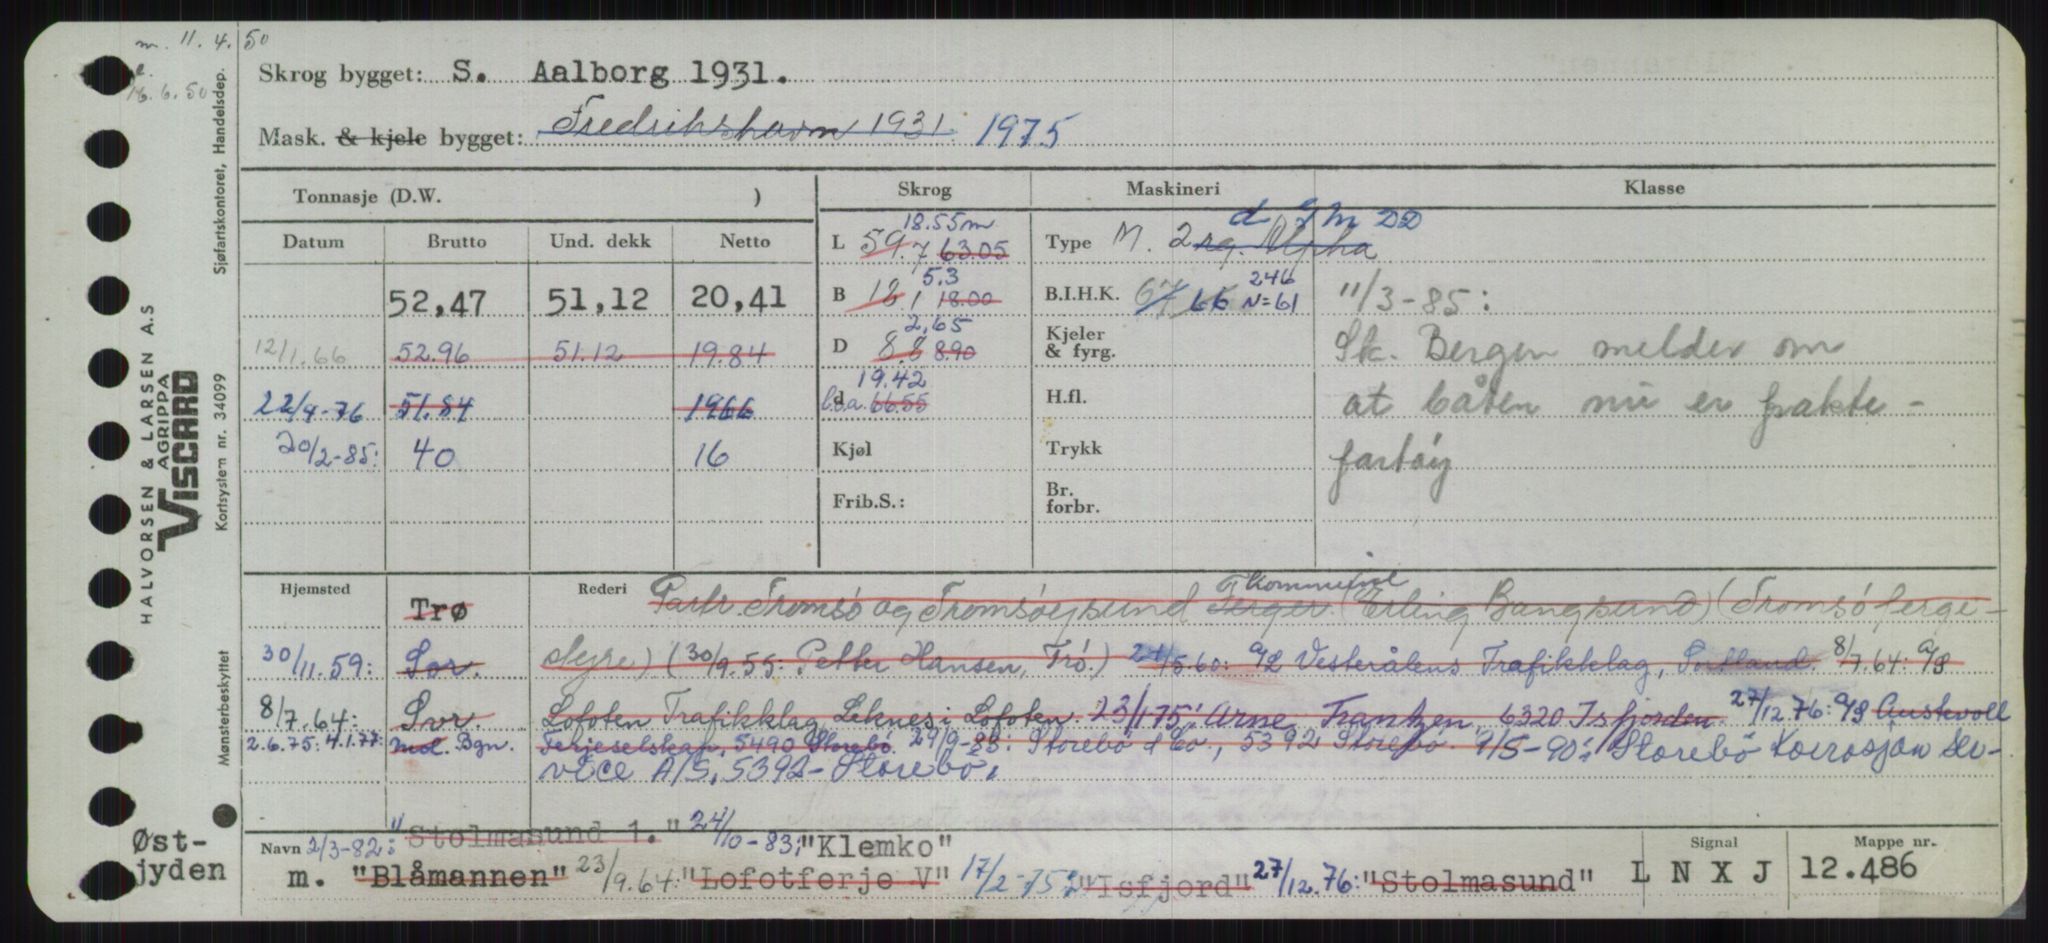 m. 11.4.50
16.6.50
Skrog bygget: S. Aalborg 1931.
Mask. & kjele bygget: Fredrikshavn 1931. 1975
Tonnasje (D.W. ) Skrog Maskineri Klasse
Datum Brutto Und. dekk Netto
18.55m
L 59.7 63.05
Type M. 2rg. Alpha d GM DD
52,47 51,12 20,41
5.3
B 18.1 18.00
B.I.H.K. 67 66 246 N=61
11/3-85:
2,65
12/1.66 52.96 51.12 19.84
D 8.8 8.90
Kjeler & fyrg.
Sk. Bergen melder om
19.42
22/9-76 51.84 1966
l.o.a. 66.55
H.fl.
at båten nu er frakte-
20/2-85: 40 16
Kjøl
Trykk
fartøy
Frib.S.:
Br. forbr.
Hjemsted Trø Rederi Partr. Tromsø og Tromsøysund Ferger kommunal (Erling Bangsund) (Tromsø ferge-
30/11.59: Sor. styre) (30/9.55: Petter Hansen, Trø.) 21/5.60: A/S Vesterålens Trafikklag, Sortland. 8/7.64: A/S
8/7.64: Svr Lofoten Trafikklag Leknes i Lofoten. 23/1 75: Arne Frantzen, 6320 Isfjorden 27/12.76: A/S Austevoll
2.6.75: 4.1.77: Mol. Bgn. Ferjeselskap, 5490 Storebø. 29/9-83: Storebö & Co., 5392 Storebø. 9/5-90: Storebö Korrosjon Ser-
vice A/S, 5392 - Storebø.
Navn 2/3-82: "Stolmasund 1." 24/10-83: "Klemko"
m. "Blåmannen" 23/9.64: "Lofotferje V" 17/2-75: "Isfjord" 27/12.76: "Stolmasund"
Signal L N X J
Mappe nr. 12.486
Øst-
jyden
Sjøfartskontoret, Handelsdep.
HALVORSEN & LARSEN A.S
AGRIPPA
VISCARD
Kortsystem nr. 34099
Mønsterbeskyttet